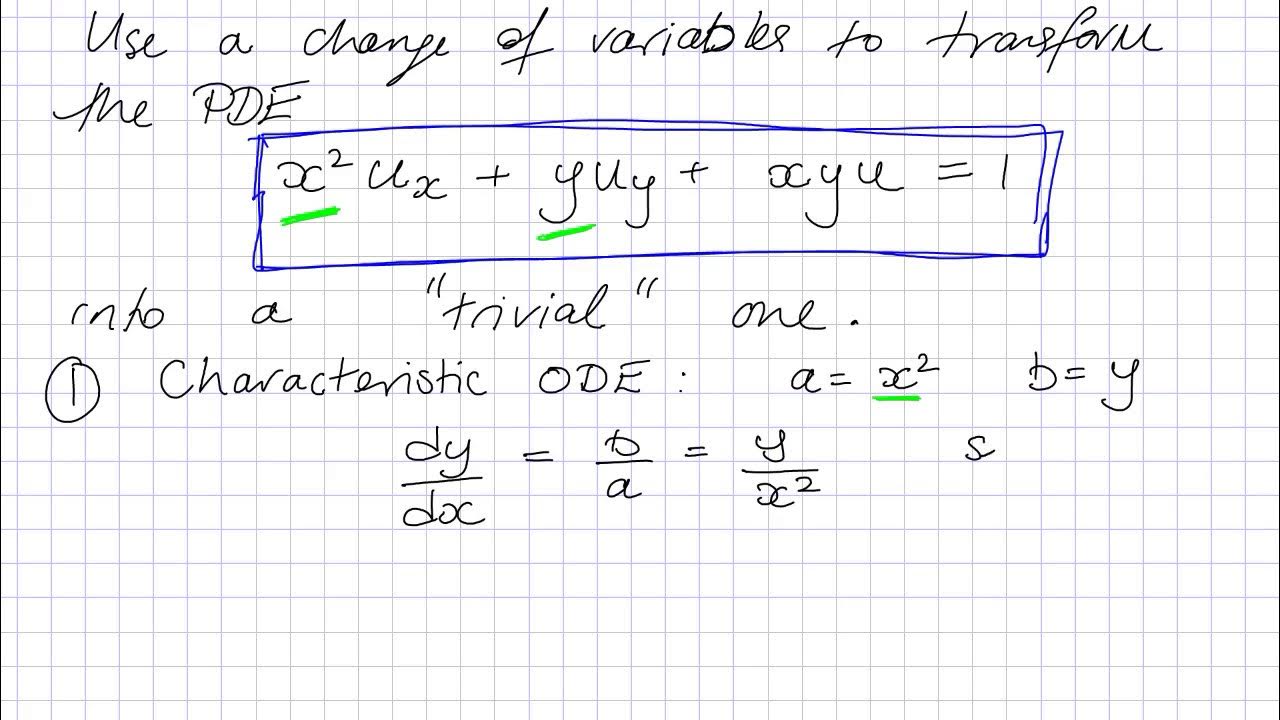 Use a change of variables to transform
the PDE
x² uₓ + y u_y + xyu = 1
into a "trivial" one.
① Characteristic ODE : a = x² b = y
dy/dx = b/a = y/x² s